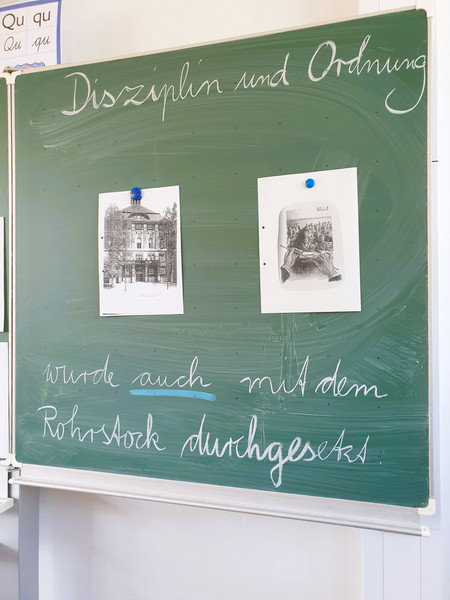 Qu qu
Qu qu
Disziplin und Ordnung
wurde auch mit dem
Rohrstock durchgesetzt.